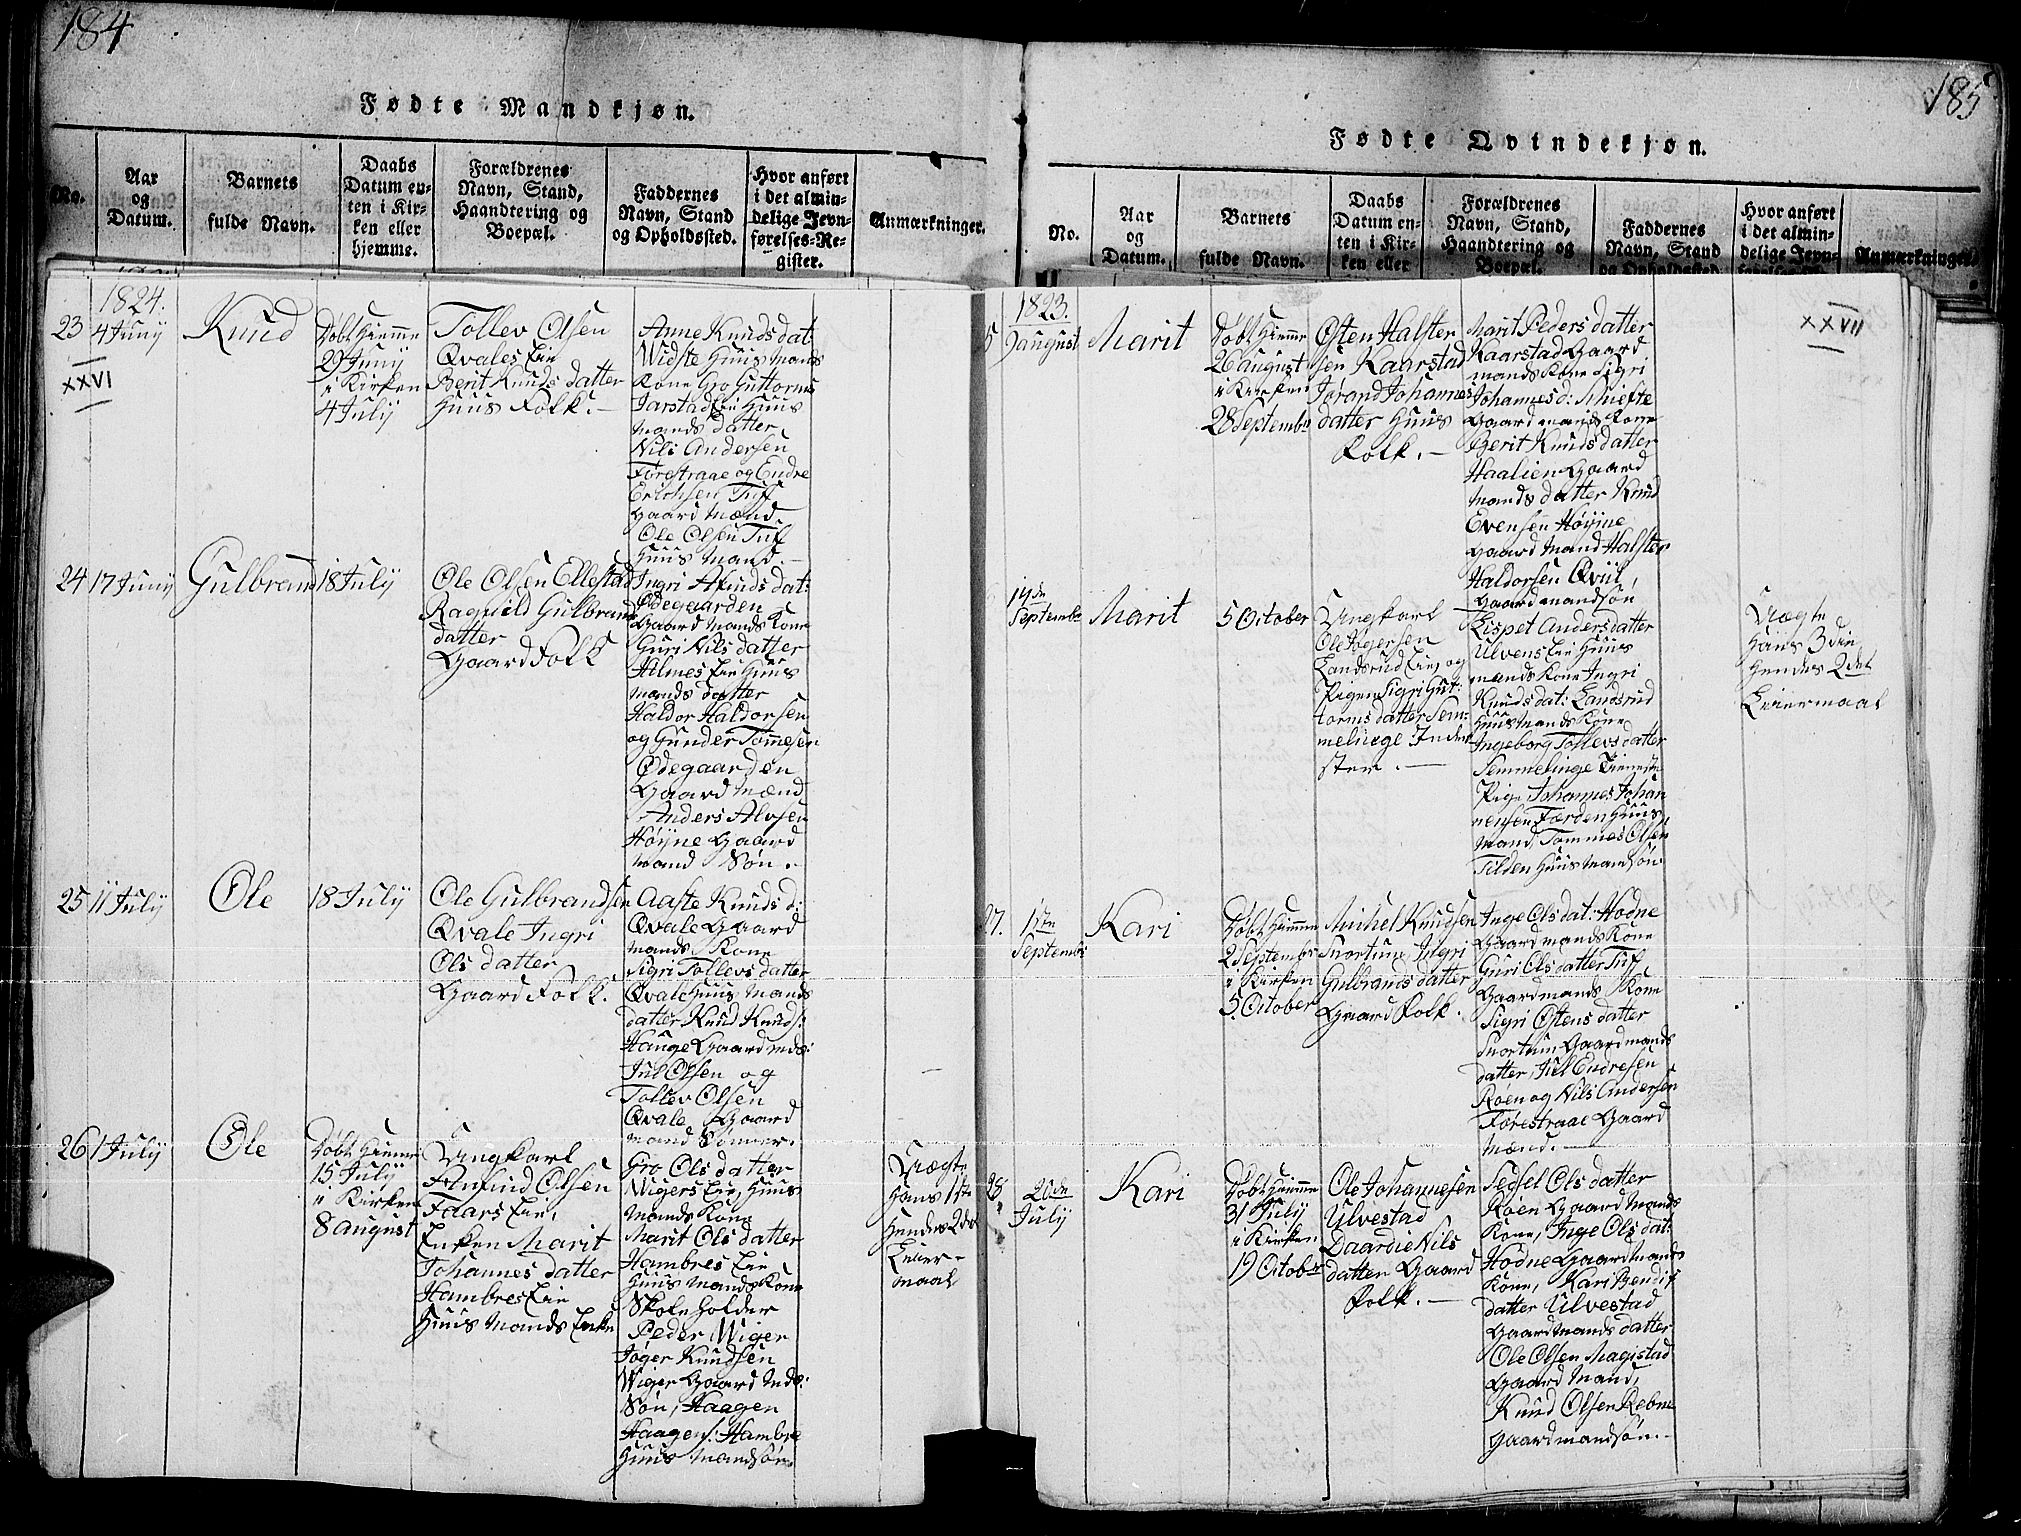 184
Fødte Mandkjøn.
No.
Aar
og
Datum.
Barnets
fulde Navn.
Daabs
Datum en-
ten i Kir-
ken eller
hjemme.
Forældrenes
Navn, Stand,
Haandtering og
Boepæl.
Faddernes
Navn, Stand
og Opholdssted.
Hvor anført
i det almin-
delige Jevn-
førelses-Re-
gister.
Anmærkninger.
1824.
23
4 Juny
XXVI
Knud
Døbt hiemme
29 Juny
i Kirken
4 July
Tollev Olsen
Qvales Eie
Berit Knuds datter
Huus Folk.
Anne Knuds dat
Widste Huus mands
Kone Gro Guttorms
Jarstad Eie Huus
mands datter,
Nils Andersen
Førestraae og Endre
Erichsen Tuf
Gaard Mænd
Ole Olsen Tuf
Huus mand
24
17 Juny
Gulbrand
18 July
Ole Olsen Ellestad
Ragnild Gulbrands
datter
Gaard Folk
Ingri Amunds dat:
Ødegaarden
Gaard mands Kone
Guri Nils datter
Holmes Eie Huus
mands datter
Haldor Haldorsen
og Gunder Tommesen
Ødegaarden
Gaard mænd
Anders Alvsen
Høyne Gaard
mand Søn.
25
11 July
Ole
18 July
Ole Gulbrandsen
Qvale Ingri
Ols datter
Gaard Folk.
Aaste Knuds d:
Qvale Gaard
mands Kone
Sigri Tollevs datter
Qvale Huus mands
datter Knud Knuds:
Hauge Gaard mds:
Jul Olsen og
Tollev Olsen
Qvale Gaard
mand Sønner.
26
1 July
Ole
Døbt hiemme
15 July
i Kirken
8 august
Ungkarl
Amund Olsen
Faars Eie,
Enken Marit
Johannes datter
Hambres Eie
Huus mands Enke
Gro Ols datter
Wigers Eie, Huus
mands Kone
Marit Ols datter
Hambres Eie
Huus mands Kone
Skoleholder
Peder Wiger
Jøger Knudsen
Wiger Gaard mds:
Søn, Haagen
Haagens: Hambre
Huus mandsøn.
Uægte
Hans 1ste
Hendes 2det
Leier-
maal
185
Fødte Qvindekjøn.
No.
Aar
og
Datum.
Barnets
fulde Navn.
Daabs
Datum en-
ten i Kir-
ken eller
Forældrenes
Navn, Stand,
Haandtering og
Boepæl.
Faddernes
Navn, Stand
og Opholdssted.
Hvor anført
i det almin-
delige Jevn-
Anmærkninger.
1823.
XXVII
5
9 august
Marit
Døbt hiemme
26 august
i Kirken
28 Septembr
Østen Halsten
sen Kaarstad
Jørand Johannes
datter Huus
Folk.
Marit Peders datter
Kaarstad Gaard
mands Kone Sigri
Johannesd: Miefte
Gaard mands Kone
Berit Knuds datter
Haalien Gaard
mands datter Knud
Evensen Høyne
Gaard mand Halsten
Haldorsen Qviil,
Gaardmandsøn
14de
Septembr
Marit
5 October
Ungkarl
Ole Jøgersen
Landsrud Eie, og
Pigen Sigri Gut:
torms datter Sem:
melinge Inder
ster.
Lispet Anders datter
Ulvens Eie Huus
mands Kone Ingri
Knuds dat: Landsrud
Huus mands Kone
Ingeborg Tollevs datter
Semmelinge Tieneste
Pige Johannes Johan
nensen Færden Huus
mand, Tommes Olsen
Tilden Huus Mandsøn.
Uægte
Hans 3die
Hendes 2det
Leiermaal
27.
1ste
Septembr
Kari
Døbt hiemme
2 Septembr
i Kirken
5 October
Michel Knudsen
Snortum Ingri
Gulbrands datter
Gaard Folk.
Inge Ols dat: Hodne
Gaard mands Kone
Guri Ols datter Tuf
Gaardmands Kone
Sigri Østens datter
Snortum Gaardmands
datter, Jul Endresen
Røen og Nils Andersen
Førestraae Gaard
mænd.
28
20de
July
Kari
Døbt hiemme
31 July
i Kirken
19 Octobr
Ole Johannesen
Ulvestad
Daardie Nils
datter Gaard
Folk.
Sedsel Ols datter
Røen Gaard mands
Kone, Inge Ols dat:
Hodne Gaard mands
Kone, Kari Bendix
datter Ulvestad
Gaardmands datter
Ole Olsen Magistad
Gaard mand,
Knud Olsen Rebne
Gaardmandsøn.